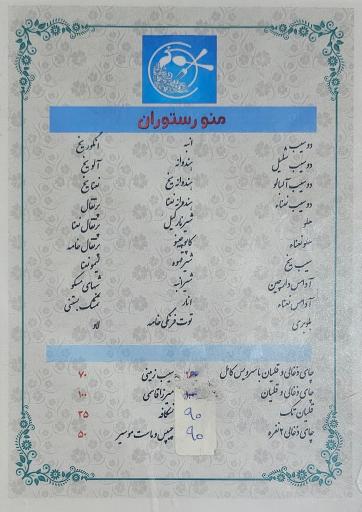 منو رستوران
دو سیب
دو سیب شلیل
دو سیب آلبالو
دو سیب نعناء
هلو
هلو نعناء
سیب یخ
آدامس دارچین
آدامس نعناء
بلوبری
انبه
هندوانه
هندوانه یخ
هندوانه نعنا
شیر نارگیل
کاپوچینو
شیر قهوه
شیر انبه
انار
توت فرنگی خامه
انگور یخ
آلو یخ
نعنا یخ
پرتقال
پرتقال نعنا
پرتقال خامه
لیمو نعنا
شبهای مسکو
نسکافه بستنی
لاو
چای ذغالی و قلیان با سرویس کامل
چای ذغالی و قلیان
قلیان تک ۹۰
چای ذغالی ۲ نفره ۹۰
سیب زمینی ۷۰
میرزا قاسمی ۱۰۰
نسکافه ۳۵
چیپس و ماست موسیر ۵۰